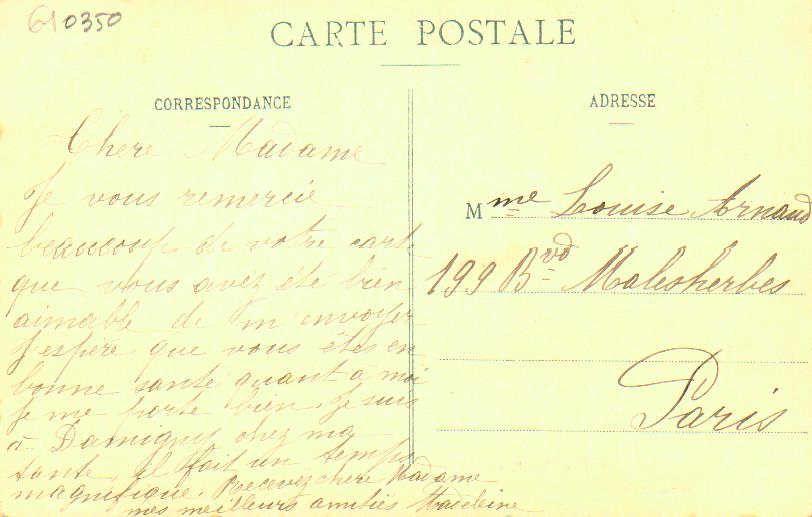 610350
CARTE POSTALE
CORRESPONDANCE
Chere Madame
Je vous remercie
beaucoup de votre carte
que vous avez été bien
aimable de m'envoyer
J'espère que vous êtes en
bonne santé quant à moi
Je me porte bien. Je suis
à Damigny chez ma
tante, il fait un temps
magnifique. Recevez chere Madame
mes meilleurs amitiés Madeleine
ADRESSE
Mme Louise Arnaud
199 Bvd Malesherbes
Paris